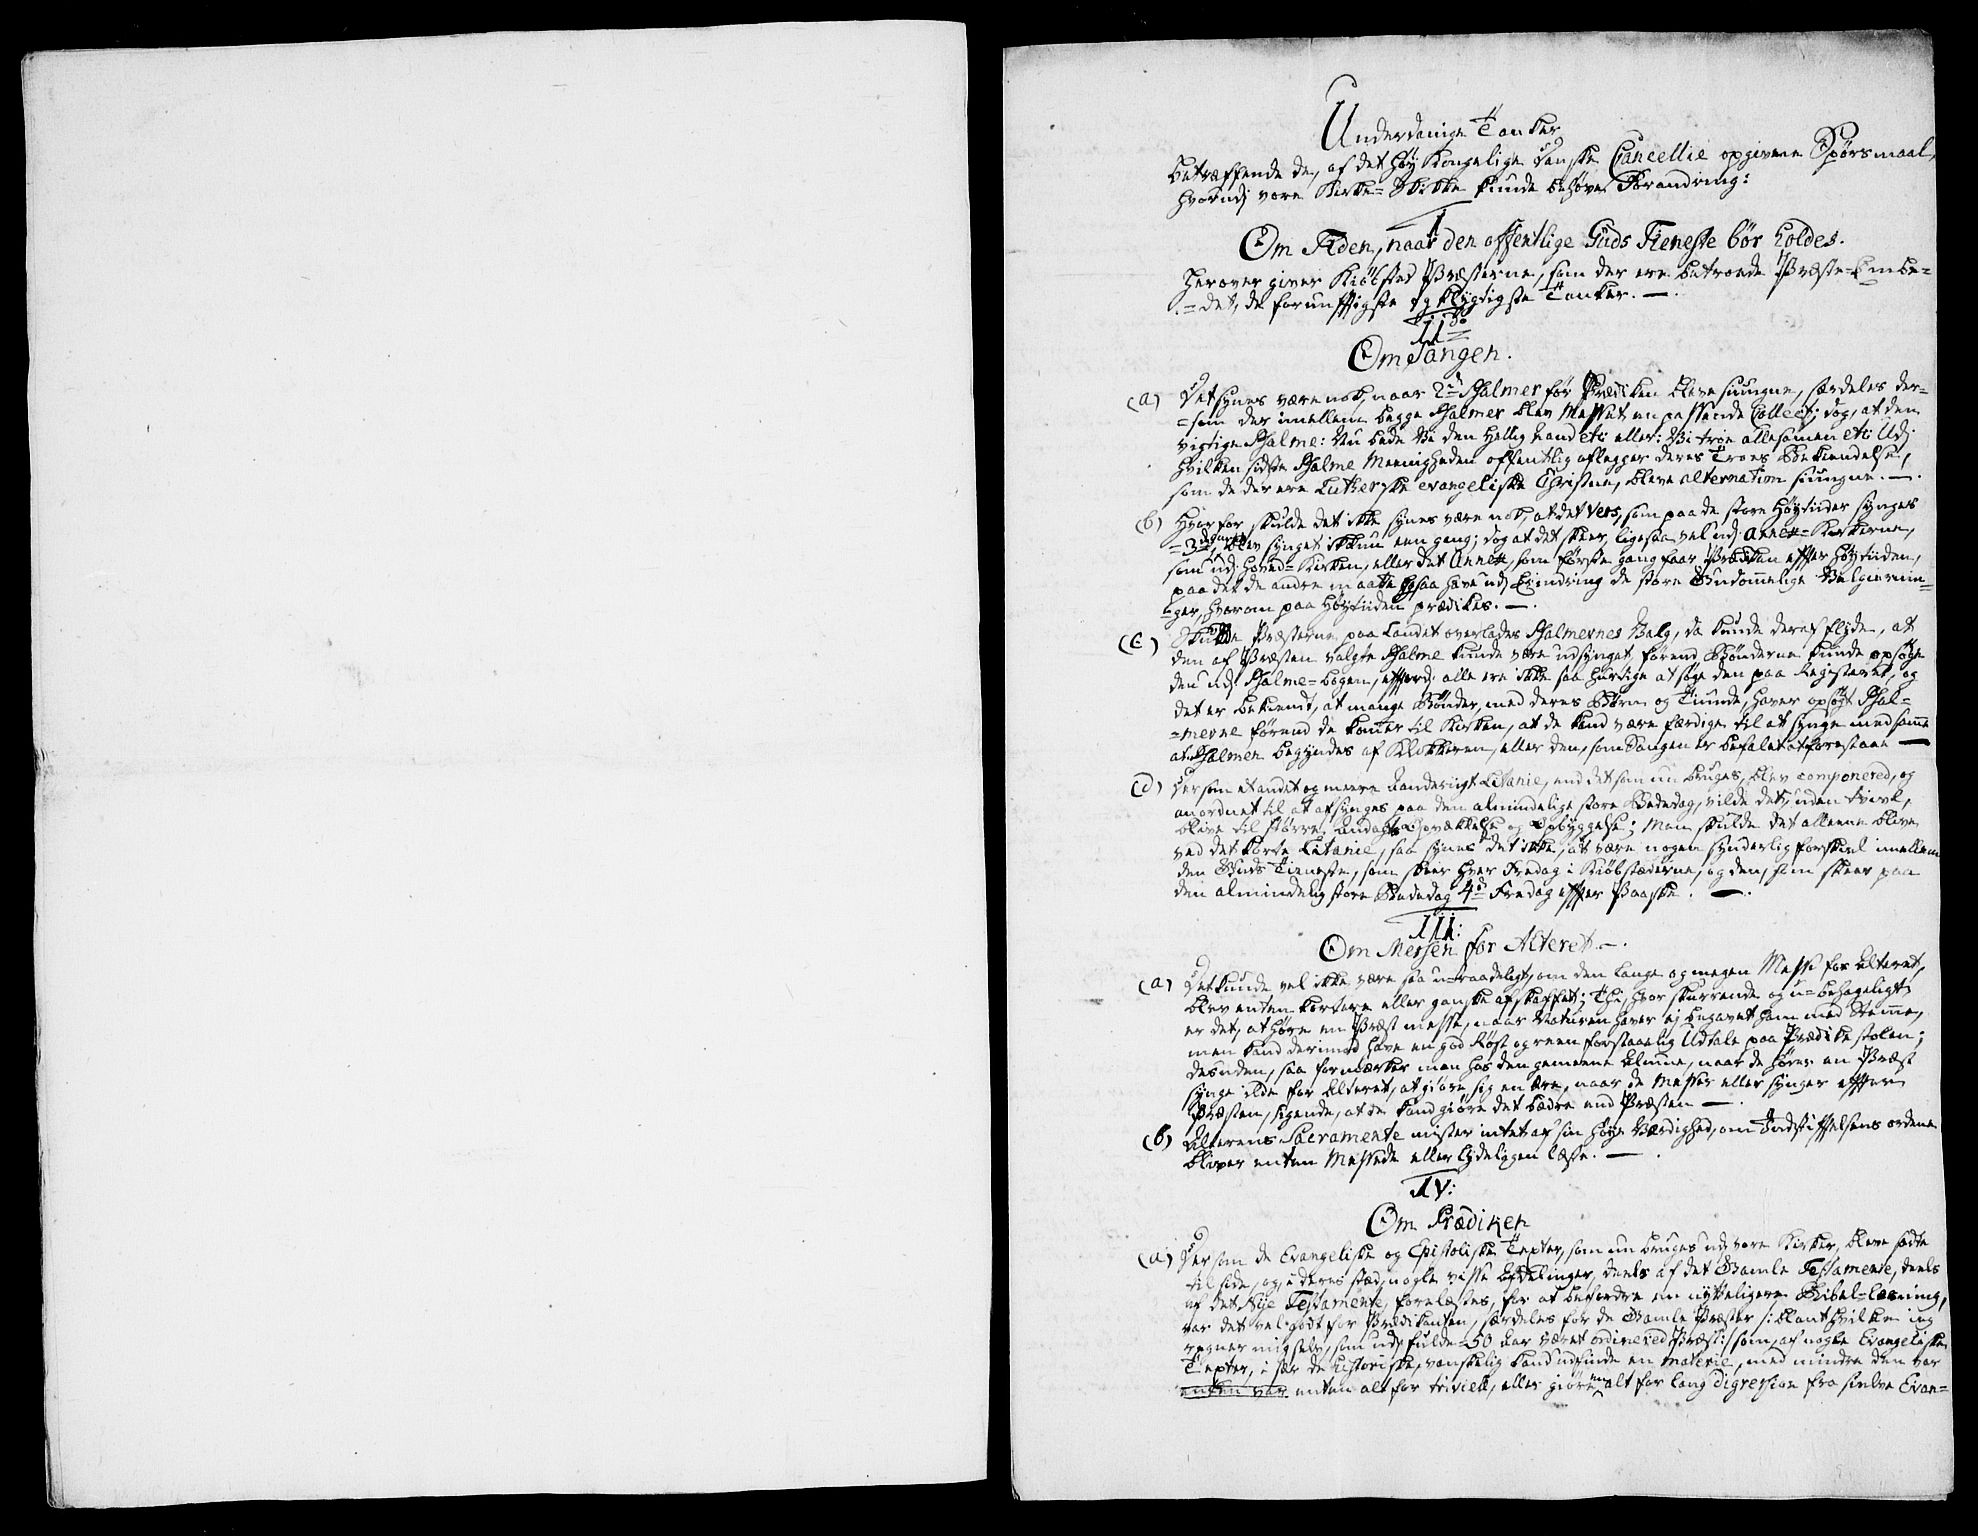 Underdanige Tanker
betræffende de, af det høy Kongelige danske Cancellie opgivene Spørsmaal,
hvorudj vore Kirke-Skikke kunde behøve Forandring:
I
Om Tiden, naar den offentlige Guds Tieneste bør holdes.
herover giver Kiøbsted Præsterne, som der ere betroede Præste-Embe-
=det, de fornunfftigste og klygtigste Tanker. —
II do
Om Sangen.
(a) Det synes være nok, naar 2de Psalmer før Prædiken bleve siungne, særdeles der-
=som der imellem begge Psalmer blev Messet en passende Collect; dog, at den
vigtige Psalme: Nu bede Vi den Hellig Aand etc eller: Vi troe allesamen etc Udj
hvilken sidste Psalme Meenigheden offentlig aflegger deres Troes Bekiendelse,
som de der ere Lutherske evangeliske Christne, bleve alternatim siungne. —
(b) Hvorfor skulde det ikke synes være nok, at det Vers, som paa de store Høytiider synges
=3de gange, blev synget ikkun een gang; dog at det skeer, ligesaa vel udj Annex-Kirkerne,
som udj hoved-Kirken, eller det Annex, som første gang faar Prædiken effter Høytiiden,
paa det de andre maatte ogsaa have udj Erindring de store Guddommelige Velgierninger,
=ger, hvorom paa Høytiiden prædikes. —
(c) Skulde Præsterne paa Landet overlades Psalmernes Valg, da kunde deraf flyde, at
den af Præsten valgte Psalme kunde være udsynget, førend Bønderne kunde opsøge
den udj Psalme-bogen, effterdj alle ere ikke saa hurtige at søge den paa Registeret, og
det er bekiendt, at mange Bønder, med deres Børn og Tiunde, haver opsøgt Psal-
=merne førend de komer til Kirken, at de kand være færdige til at synge med samme
at Psalmen begyndes af Klokkeren, eller den, som Sangen er befalet at forestaae —
(d) Dersom et andet og meere Aanderigt Litanie, end det som nu bruges, blev componered, og
anordnet til at afsynges paa den almindelige store Bededag, vilde det, uden tvivl,
blive til større Andagts Opvækkelse og Opbyggelse; Men skulde det alleene blive
ved det korte Litanie, saa synes det ikke, at være nogen synderlig forskiel imellem
den Guds Tieneste, som skeer hver Fredag i Kiøbstæderne, og den, som skeer paa
den almindelig store Bededag 4de Fredag effter Paaske. —
III:
Om Messen for Alteret. —
(a) Det kunde vel ikke være saa u=raadeligt, om den lange og megen Messe for Alteret,
blev enten kortere eller ganske afskaffet; Thi, hvor skurrende og u=behageligt
er det, at høre en Præst messe, naar Naturen haver ej begavet ham med Stemme,
men kand derimod have en god Røst og reen forstaaelig Udtale paa Prædikestolen;
desuden, saa formærker man hos den gemeene Almue, naar de hører en Præst
synge ilde for Alteret, at giøre sig en Ære, naar de Messer eller synger effter
Præsten, sigende, at de kand giøre det bædre end Præsten —
(b) Alterens Sacramente mister intet af sin høye Værdighed, om Indstifftelsens ordene
bliver enten Messede eller lydeligen læste. —
IV:
Om Prædiken
(a) Dersom de Evangeliske og Epistoliske Texter, som nu bruges udj vore Kirker, bleve sadte
til side, og i deres sted, nogle visse Afdelinger, deels af det Gamle Testamente, deels
af det Nye Testamente, forelæstes, for at befordre en nytteligere Bibel-læsning,
var det vel godt for Prædikanten, særdeles for de Gamle Præster /: blant hvilke ieg
regner mig selv, som udj fulde =50 Aar været ordinered Præst :/ som, af nogle Evangeliske
Texter, i sær de historiske, vanskelig kand udfinde en materie, med mindre den var
enten var enten alt for triviell, eller giøre en alt for lang digression fra sielve Evan-